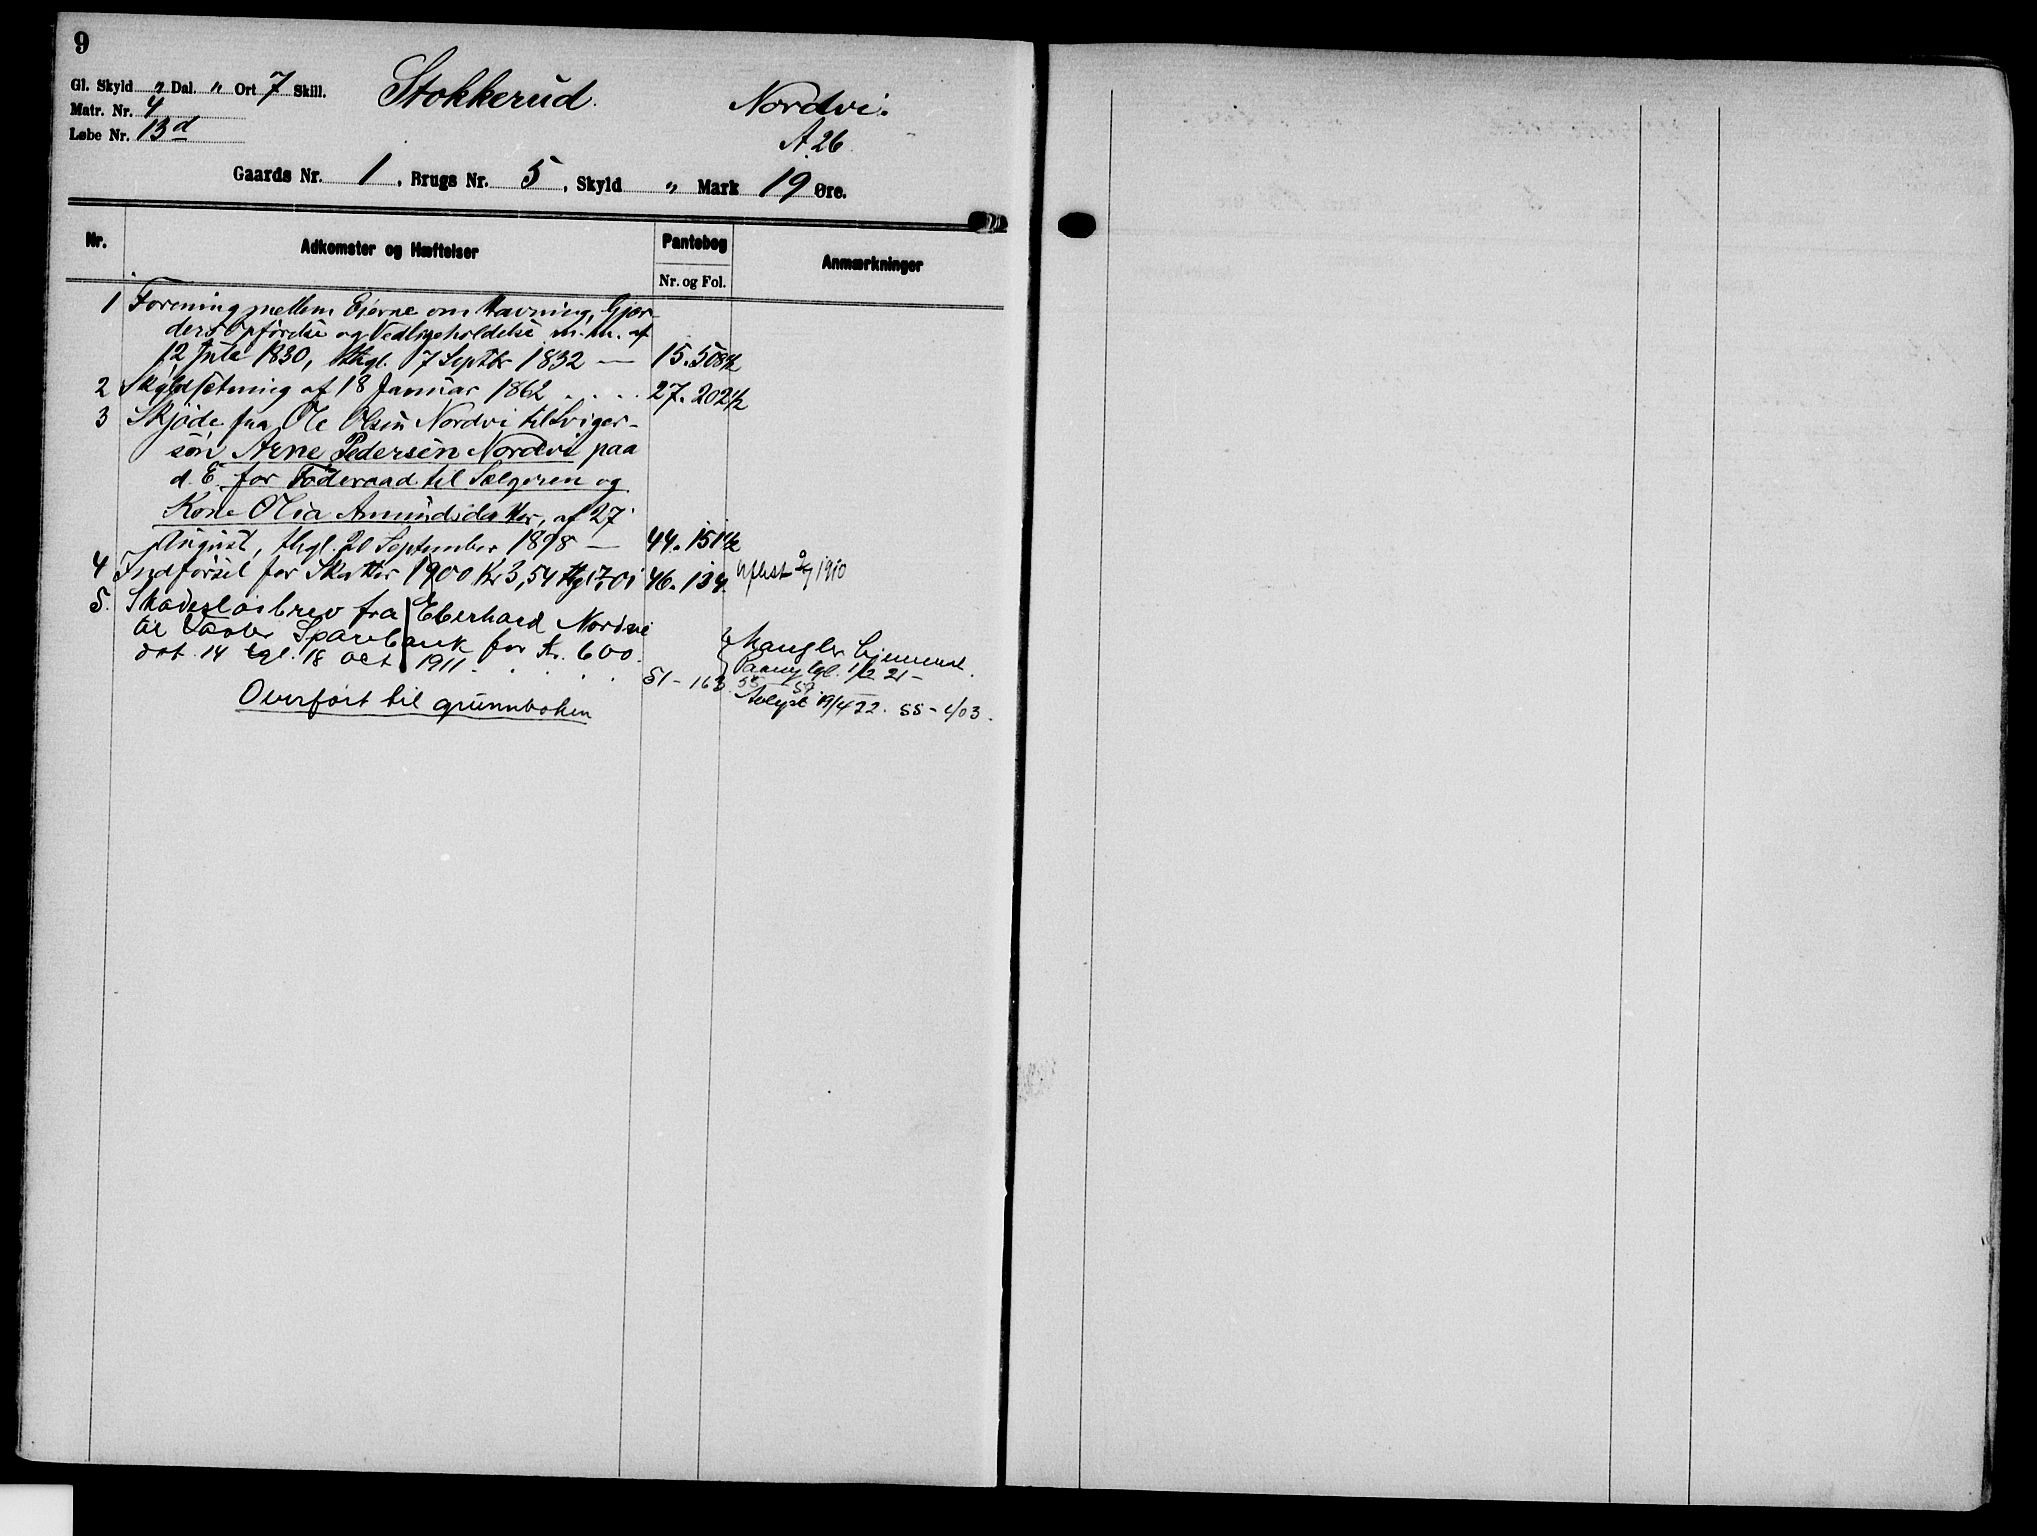 9
Gl. Skyld „ Dal. „ Ort 7 Skill.
Stokkerud.
Nordvi.
Matr. Nr. 4
Løbe Nr. 13d
A. 26
Gaards Nr. 1, Brugs Nr. 5, Skyld „ Mark 19 Øre.
Nr.
Adkomster og Hæftelser
Pantebog
Nr. og Fol.
Anmærkninger
1 Forening mellem Eierne om Havning, Gjær-
ders Opförelse og Vedligeholdelse m.m. af
12 Juli 1830, thgl. 7 Septbr 1832 — 15.508½
2 Skyldsætning af 18 Januar 1862 . . . . 27.202½
3 Skjöde fra Ole Olsen Nordvi til Sviger-
sön Arne Pedersen Nordvi paa
d. E. for Föderaad til Sælgeren og
Kone Olia Amundsdatter, af 27
August, thgl. 20 September 1898 — 44.151½
4 Indförsel for Skatter 1900 Kr 3,54 46.134. 1910
5. Skadeslösbrev fra Eberhard Nordvi
til Vaaler Sparebank for Kr. 600.
dat. 14 tgl. 18 oct 1911 . . . . 51 - 163.
Mangler Hjemmel.
Paany tgl. 1/2 21 -
55 - 57
Avlyst 19/4 22. 55 - 403.
Overfört til grunnboken